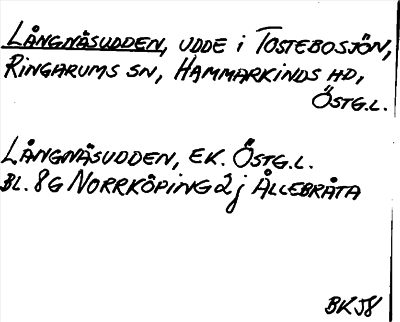 LÅNGNÄSUDDEN, UDDE i TOSTEBOSJÖN,
RINGARUMS SN, HAMMARKINDS HD,
ÖSTG.L.
LÅNGNÄSUDDEN, EK. ÖSTG.L.
BL. 8G NORRKÖPING 2j ÅLLEBRÅTA
BKJ8